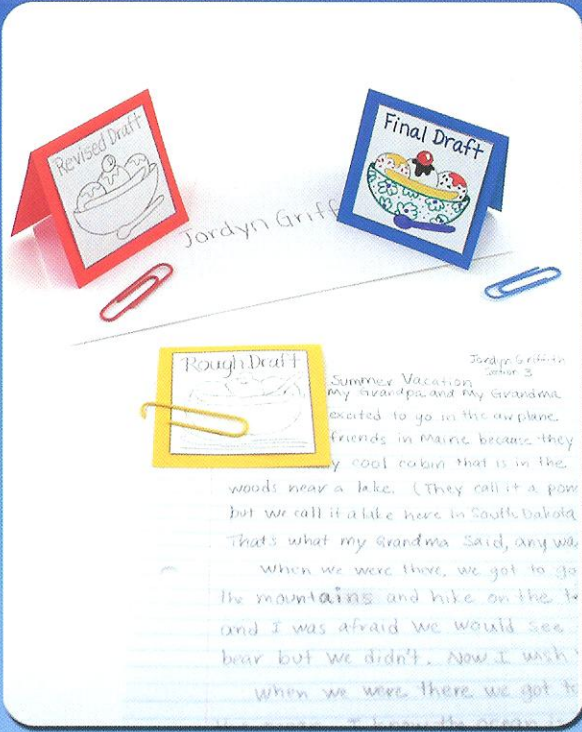 Revised Draft
Final Draft
Jordyn Griff
Rough Draft
Jordyn Griffith
Section 3
Summer Vacation
My Grandpa and My Grandma
excited to go in the airplane.
friends in Maine because they
y cool cabin that is in the
woods near a lake. (They call it a pon
but we call it a lake here in South Dakota
That's what my Grandma Said, any wa
When we were there, we got to go
the mountains and hike on the
and I was afraid we would see
bear but we didn't. Now I wish
When we were there we got to